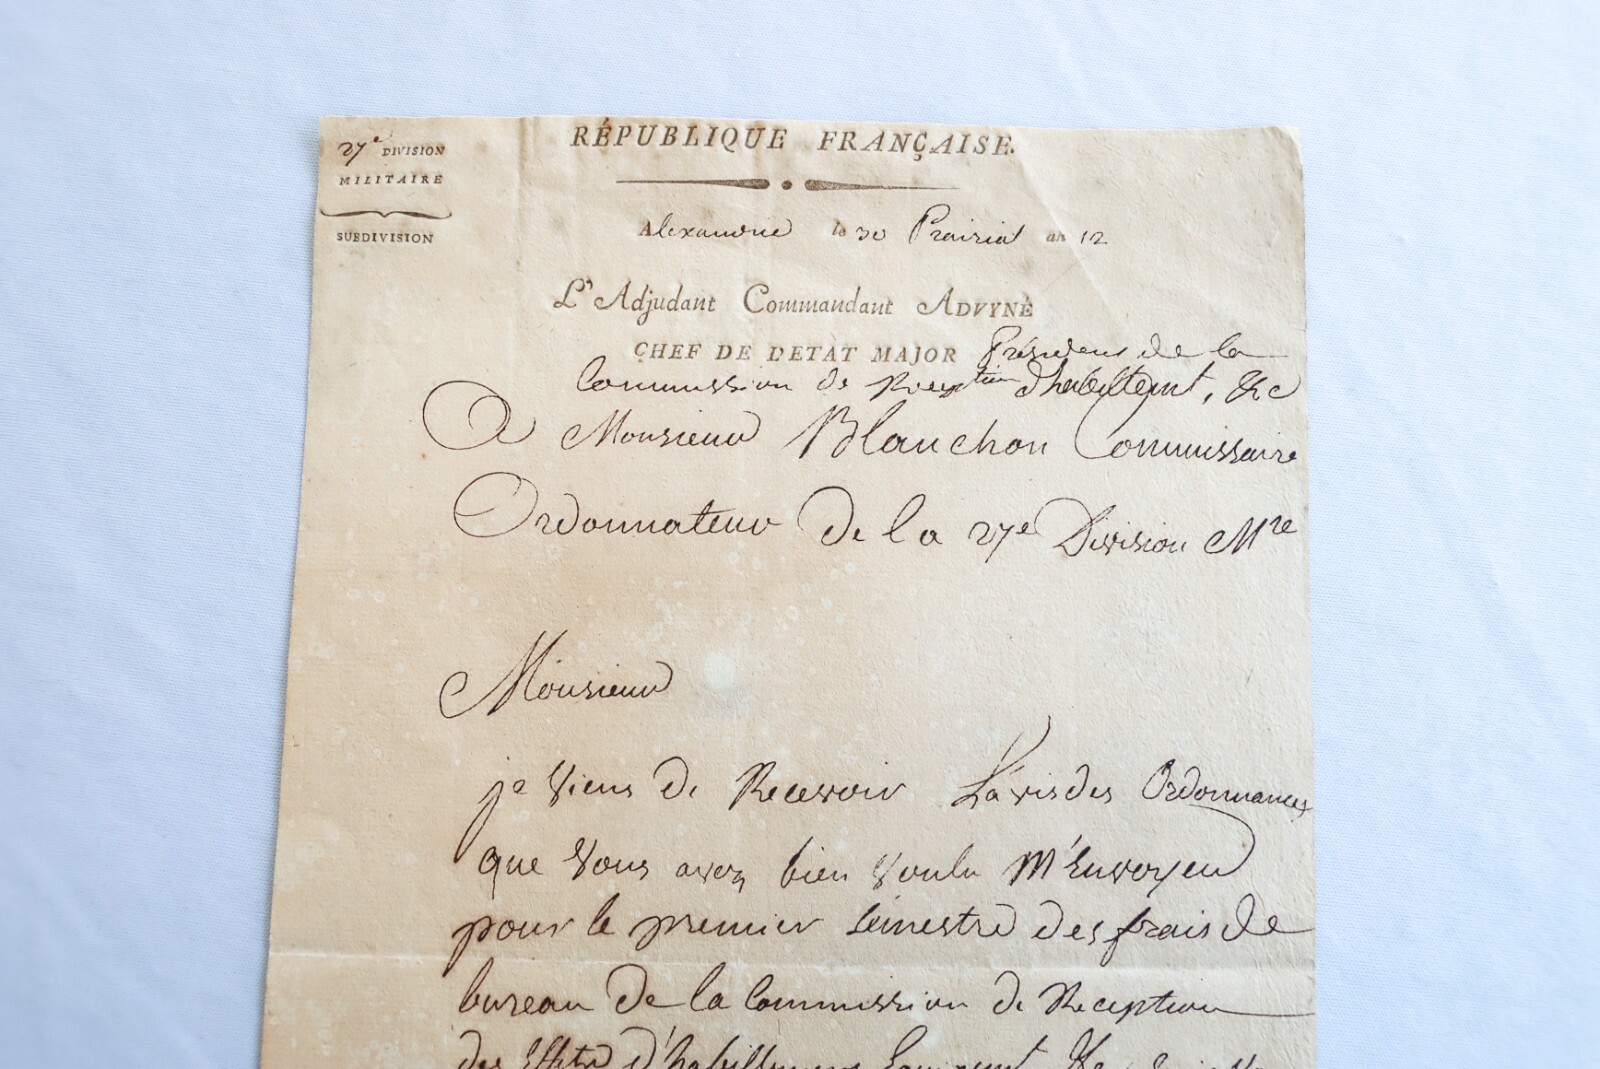 27e DIVISION
MILITAIRE
SUBDIVISION
RÉPUBLIQUE FRANÇAISE.
Alexandrie le 30 Prairial an 12
L'Adjudant Commandant ADVYNÈ
CHEF DE DETAT MAJOR Président de la
Commission de Reception d'habillemt, &c
A Monsieur Blanchon Commissaire
Ordonnateur de la 27e Division Mre
Monsieur
je viens de Recevoir L'avis des Ordonnances
que vous avez bien voulu M'Envoyer
pour le premier Semestre des frais de
bureau de la Commission de Reception
des Effets d'habillement